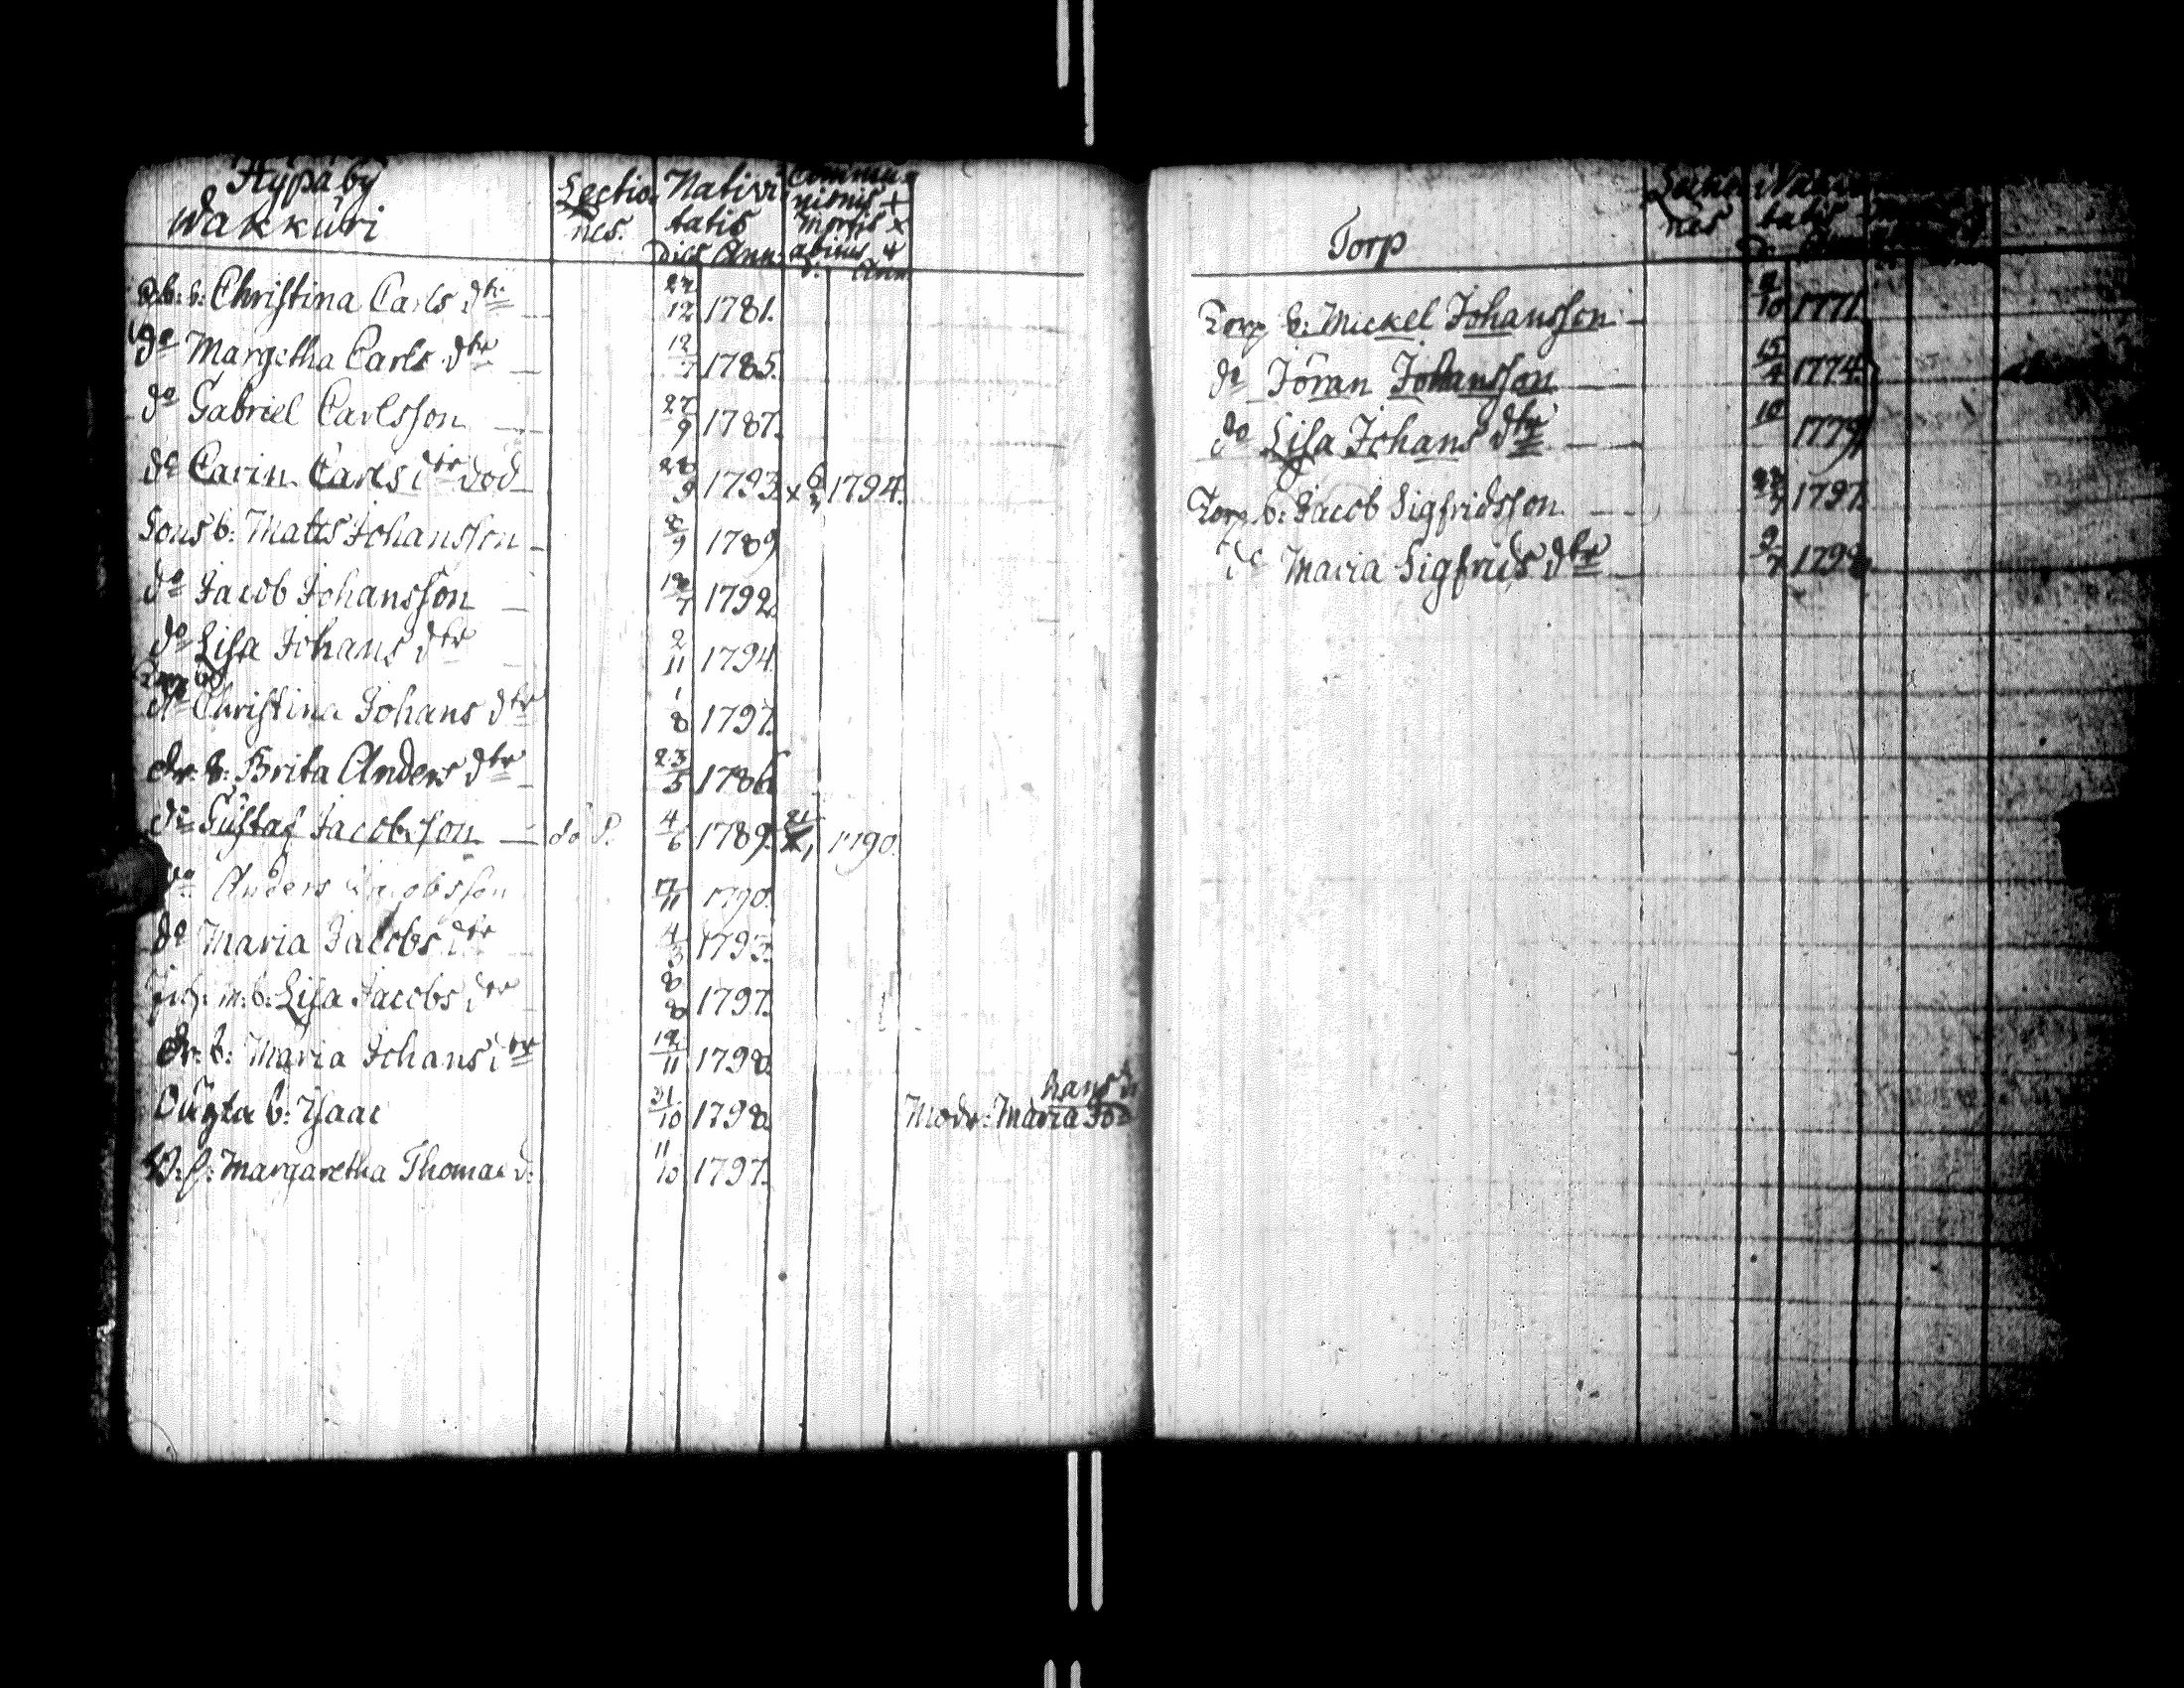 Hypa by
Wakkuri
Lectio nes.
Nativi tatis
Dies Ann:
Commu nionis +
Mortis x
abitus
d: Ann
b: Christina Carls dtr 12 1781.
do Margetha Carls dtr 12 7 1785.
do Gabriel Carlsson 27 9 1787.
do Carin Carls dtr död 28 9 1793. x 6 1794.
Sons b: Matts Johansson 8 9 1789
do Jacob Johansson 18 7 1792.
do Lisa Johans dtr 2 11 1794.
do Christina Johans dtr 1 8 1797.
Dr: b: Brita Anders dtr 23 5 1786
do Gustaf Jacobsson dö 4 6 1789. 21 1 1790.
do Anders Jacobsson 17 11 1790.
do Maria Jacobs dtr 4 3 1793.
m: b: Lisa Jacobs dtr 8 8 1797.
Dr: b: Maria Johans dtr 12 11 1798.
b: Ysaac 31 10 1798. Modr: Maria Jo
hans d
Margaretha Thomae d: 11 10 1797.
Torp
nes tatis
Torp b: Mickel Johansson 10 1771.
do Jöran Johansson 15 4 1774.
do Lisa Johans dtr 10 1779.
Torp b: Jacob Sigfridsson 7 1797.
do Maria Sigfrids dtr 9 7 1798